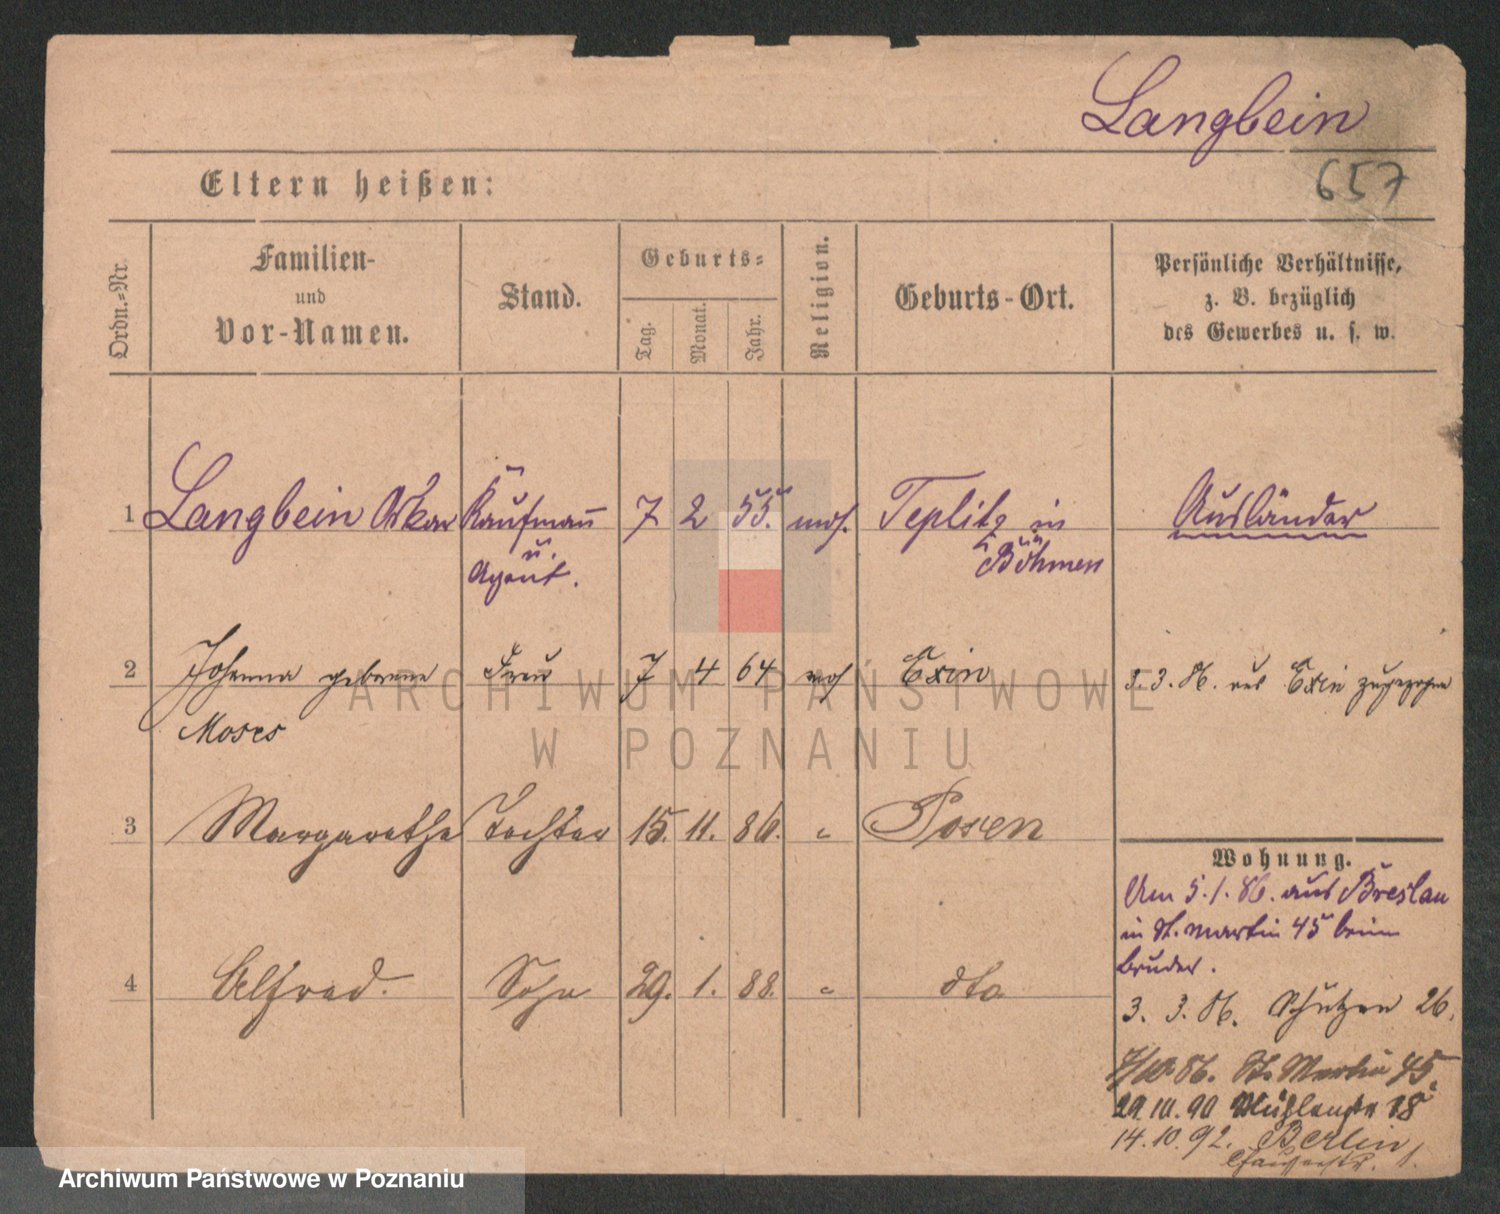 Langbein
657
Eltern heißen:
Ordn.-Nr.
Familien-
und
Vor-Namen.
Stand.
Geburts-
Tag.
Monat.
Jahr.
Religion.
Geburts-Ort.
Persönliche Verhältnisse,
z. B. bezüglich
des Gewerbes u. s. w.
1 Langbein Oskar Kaufmann 7 2 55. mos. Teplitz in
u. Böhmen
Agent.
Ausländer
2 Johanna geborene Frau 7 4 64 mos Exin 3. 3. 86. aus Exin zugezogen
Moses
3 Margarethe Tochter 15. 11. 86. " Posen
4 Alfred. Sohn 29. 1. 88. " dto
Wohnung.
Am 5. 1. 86. aus Breslau
in St. Martin 45 beim
Bruder.
3. 3. 86. Schützen 26.
7/10 86. St. Martin 45.
29.10.90 Mühlenstr 18
14.10.92. Berlin
ARCHIWUM PAŃSTWOWE
W POZNANIU
Archiwum Państwowe w Poznaniu